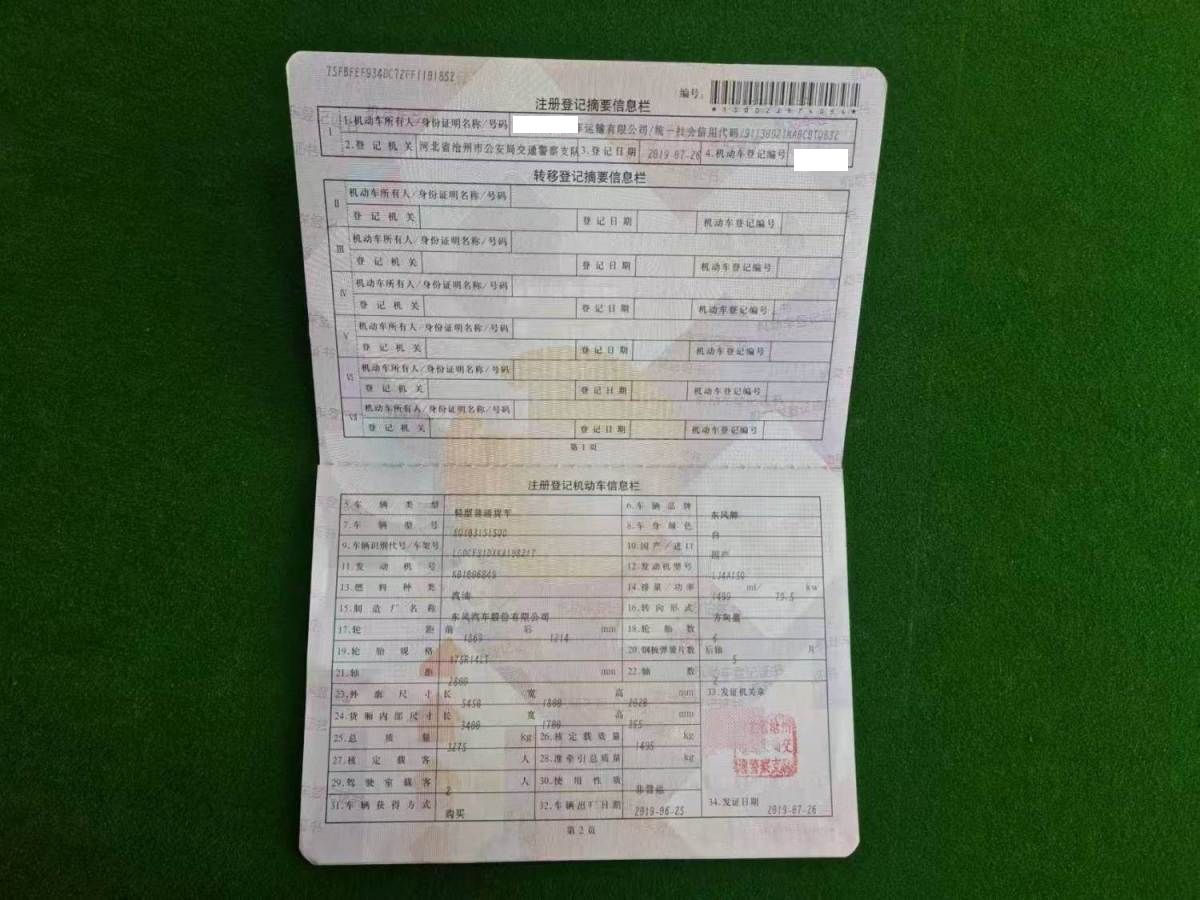 注册登记摘要信息栏
编号:
I 1.机动车所有人/身份证明名称/号码 车运输有限公司/统一社会信用代码
2.登记机关 河北省沧州市公安局交通警察支队 3.登记日期 2019-07-26 4.机动车登记编号
转移登记摘要信息栏
II 机动车所有人/身份证明名称/号码
登记机关 登记日期 机动车登记编号
III 机动车所有人/身份证明名称/号码
登记机关 登记日期 机动车登记编号
IV 机动车所有人/身份证明名称/号码
登记机关 登记日期 机动车登记编号
V 机动车所有人/身份证明名称/号码
登记机关 登记日期 机动车登记编号
VI 机动车所有人/身份证明名称/号码
登记机关 登记日期 机动车登记编号
VII 机动车所有人/身份证明名称/号码
登记机关 登记日期 机动车登记编号
第1页
注册登记机动车信息栏
5.车辆类型 轻型普通货车 6.车辆品牌 东风牌
7.车辆型号 8.车身颜色 白
9.车辆识别代号/车架号 10.国产/进口 国产
11.发动机号 12.发动机型号 LJ4A15Q
13.燃料种类 汽油 14.排量/功率 1499 ml/ 79.5 kw
15.制造厂名称 东风汽车股份有限公司 16.转向形式 方向盘
17.轮距 前 后 1214 mm 18.轮胎数
19.轮胎规格 175R14LT 20.钢板弹簧片数 后轴 5 片
21.轴距 mm 22.轴数 2
23.外廓尺寸 长 5450 宽 高 mm 33.发证机关章
24.货厢内部尺寸 长 3400 宽 1700 高 mm
25.总质量 kg 26.核定载质量 1495 kg
27.核定载客 人 28.准牵引总质量 kg
29.驾驶室载客 2 人 30.使用性质 非营运
31.车辆获得方式 购买 32.车辆出厂日期 2019-06-25 34.发证日期 2019-07-26
第2页